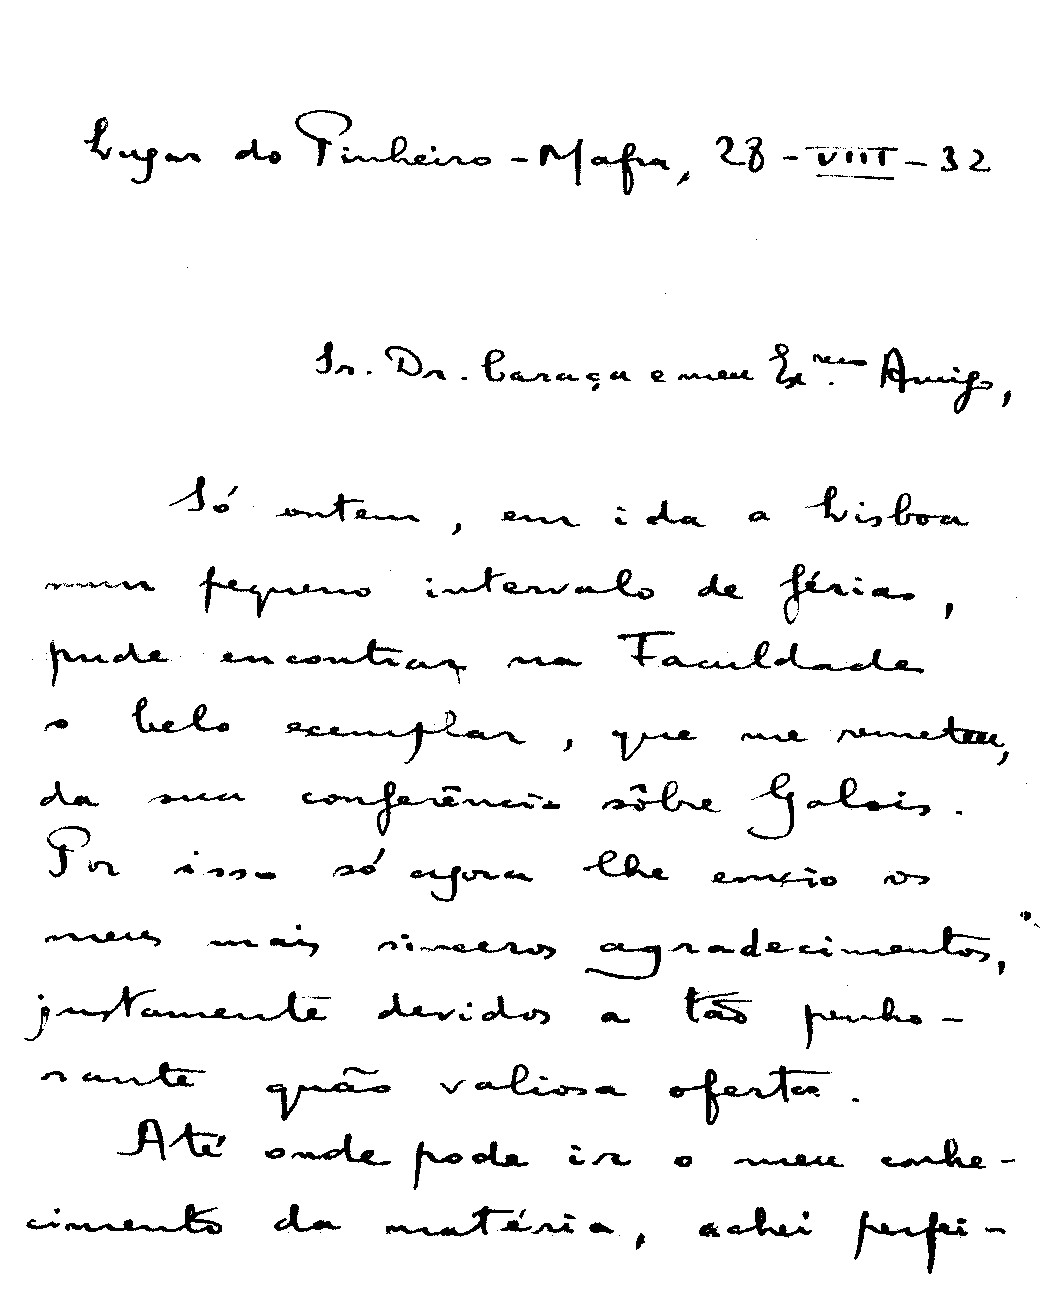 Lugar do Pinheiro - Mafra, 28 - VIII - 32
Sr. Dr. Caraça e meu Ex.mo Amigo,
Só ontem, em ida a Lisboa
num pequeno intervalo de férias,
pude encontrar na Faculdade
o belo exemplar, que me remeteu,
da sua conferência sôbre Galois.
Por isso só agora lhe envio os
meus mais sinceros agradecimentos,
justamente devidos a tão penho-
rante quão valiosa oferta.
Até onde pode ir o meu conhe-
cimento da matéria, achei perfei-